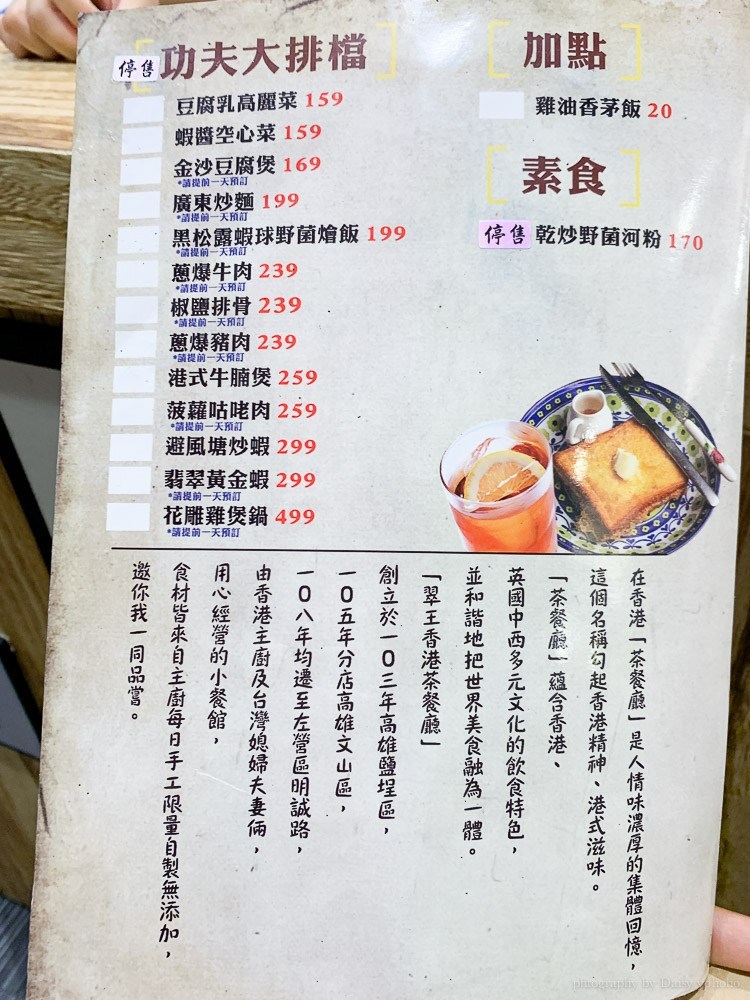 停售
功夫大排檔
豆腐乳高麗菜 159
蝦醬空心菜 159
金沙豆腐煲 169
*請提前一天預訂
廣東炒麵 199
*請提前一天預訂
黑松露蝦球野菌燴飯 199
*請提前一天預訂
蔥爆牛肉 239
*請提前一天預訂
椒鹽排骨 239
*請提前一天預訂
蔥爆豬肉 239
*請提前一天預訂
港式牛腩煲 259
菠蘿咕咾肉 259
*請提前一天預訂
避風塘炒蝦 299
翡翠黃金蝦 299
*請提前一天預訂
花雕雞煲鍋 499
*請提前一天預訂
加點
雞油香茅飯 20
素食
停售 乾炒野菌河粉 170
在香港「茶餐廳」是人情味濃厚的集體回憶，
這個名稱勾起香港精神、港式滋味。
「茶餐廳」蘊含香港、
英國中西多元文化的飲食特色，
並和諧地把世界美食融為一體。
「翠王香港茶餐廳」
創立於一0三年高雄鹽埕區，
一0五年分店高雄文山區，
一0八年均遷至左營區明誠路，
由香港主廚及台灣媳婦夫妻倆，
用心經營的小餐館，
食材皆來自主廚每日手工限量自製無添加，
邀你我一同品嘗。